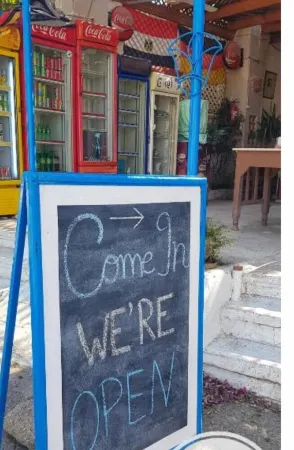 Coca-Cola
Coca-Cola
Coca-Cola
→
Come In
WE'RE
OPEN